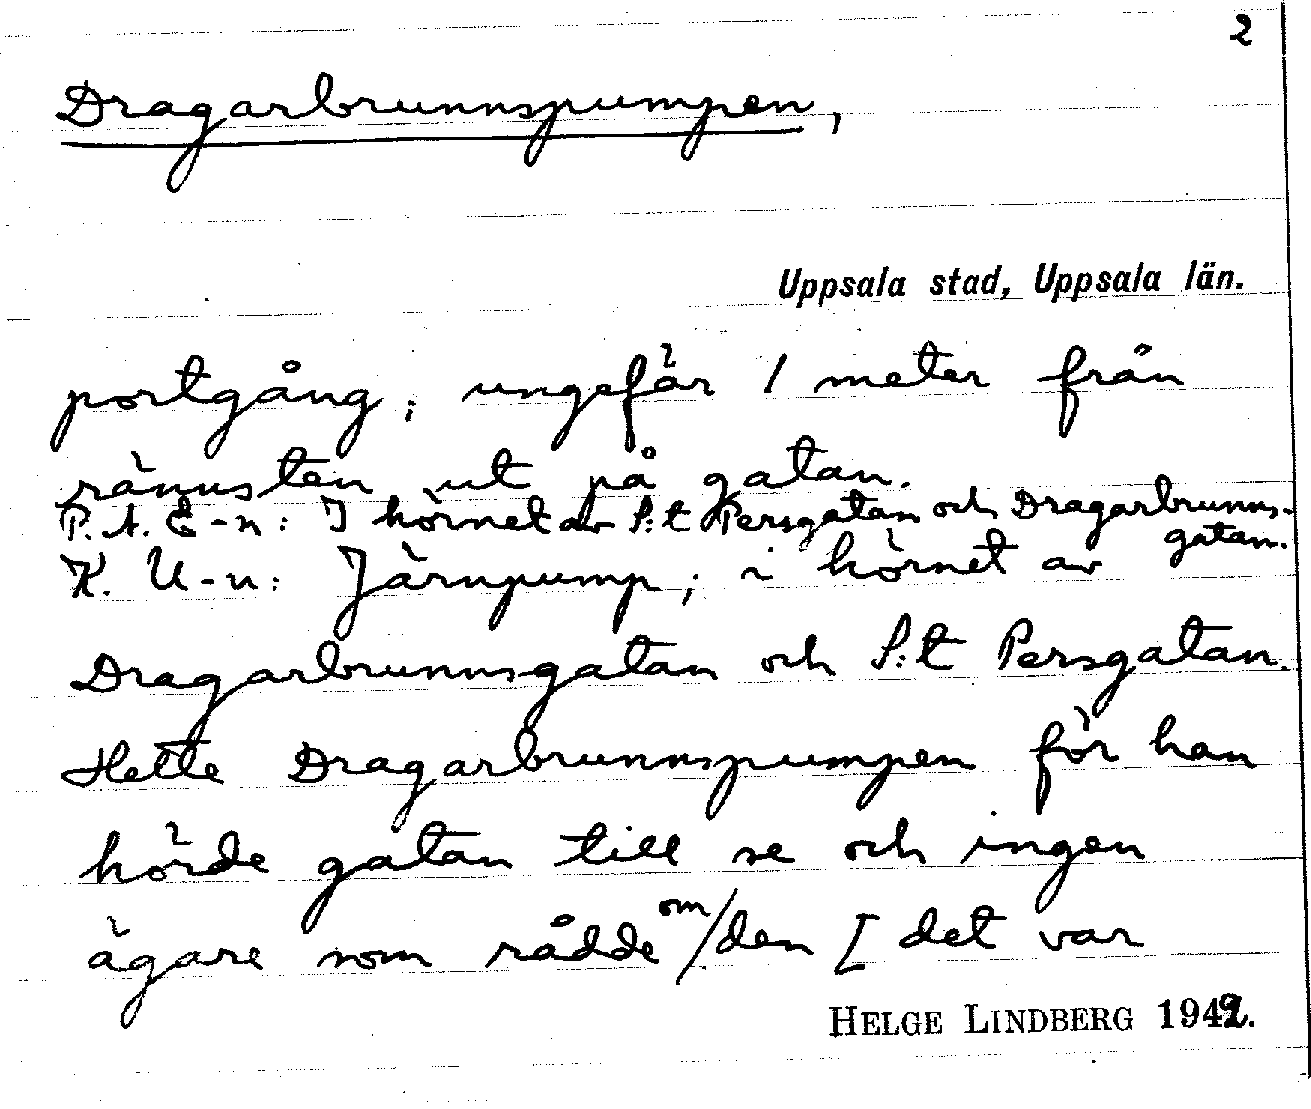 2
Dragarbrunnspumpen,
Uppsala stad, Uppsala län.
portgång; ungefär 1 meter från
rännsten ut på gatan.
P. A. E-n: I hörnet av S:t Persgatan och Dragarbrunns-
gatan.
K. U-n: Järnpump; i hörnet av
Dragarbrunnsgatan och S:t Persgatan.
Hette Dragarbrunnspumpen för han
hörde gatan till se och ingen
ägare som rådde om/den [ det var
HELGE LINDBERG 1942.